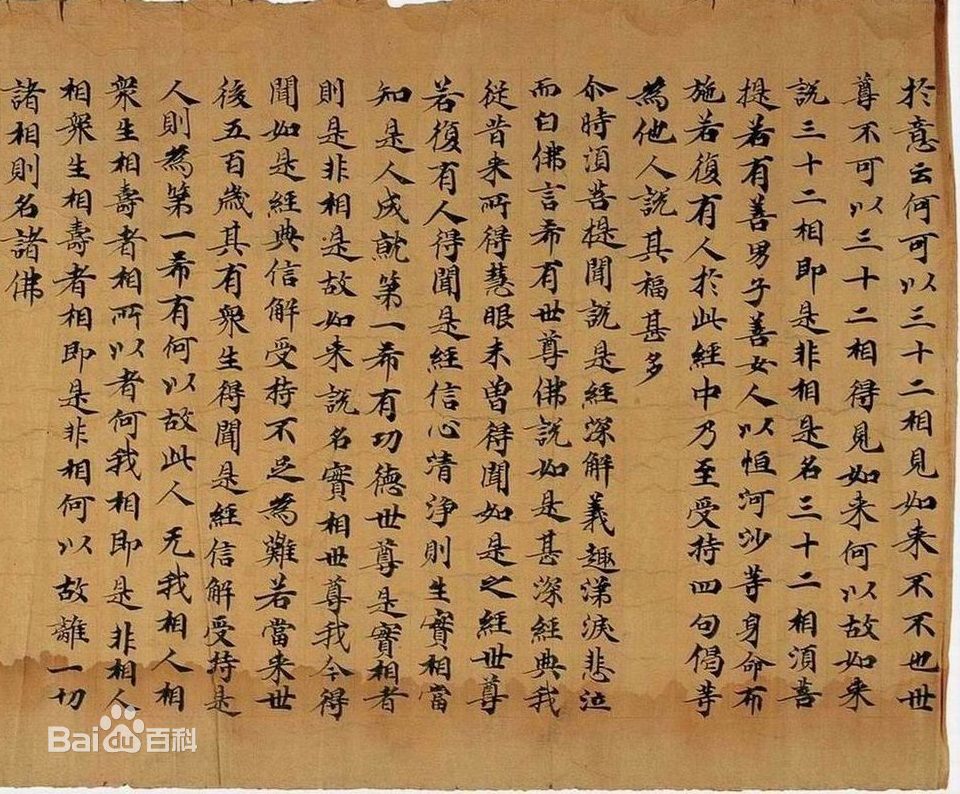 於意云何可以三十二相見如来不不也世
尊不可以三十二相得見如来何以故如来
說三十二相即是非相是名三十二相湏菩
提若有善男子善女人以恒河沙等身命布
施若復有人於此經中乃至受持四句偈等
為他人說其福甚多
尒時湏菩提聞說是經深解義趣涕淚悲泣
而白佛言希有世尊佛說如是甚深經典我
従昔来所得慧眼未曽得聞如是之經世尊
若復有人得聞是經信心清淨則生實相當
知是人成就第一希有功德世尊是實相者
則是非相是故如来說名實相世尊我今得
聞如是經典信解受持不足為難若當来世
後五百歲其有衆生得聞是經信解受持是
人則為第一希有何以故此人无我相人相
衆生相壽者相所以者何我相即是非相人
相衆生相壽者相即是非相何以故離一切
諸相則名諸佛
Bai du 百科